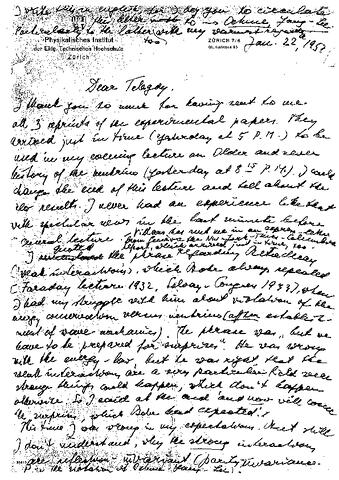 I write this in english for you to circulate
the letter with to to Oehme, Yang - Lee
Particularly to the latter with my warmest regards
too)
Physikalisches Institut
der Eidg. Technischen Hochschule
Zürich
ZÜRICH 7/6
GLORIASTR. 35
Jan. 22d 1957
Dear Telegdy,
I thank you so much for having sent to me
all 3 reprints of the experimental papers. They
arrived just in time (yesterday at 5 P.M.) to be
used in my evening lecture on Older and newer
history of the neutrino (yesterday at 8 15 P.M.) I could
change the end of this lecture and tell about the
new results. I never had an experience like that
with spectacular news in the last minute before
general lecture. Villars has sent me in an express-letter
from Geneva the New York Times
which arrived in time, too
I quoted the phrase regarding β-decay
(weak interactions), which Bohr always repeated
(Faraday lecture 1932, Solvay-Congress 1933) when
I had my struggle with him about violation of the
energy conservation versus neutrinos (after establish-
ment of wave mechanics). The phrase was "but we
have to be prepared for surprises". He was wrong
with the energy-law, but he was right that the
weak interactions are a very particular field where
strange things could happen, which don't happen
otherwise. So I said at the end "and now will come
the surprise, which Bohr had expected"!
This time I was wrong in my expectations. But still
I don't understand, why the strong interactions
are reflection-invariant (parity invariance
P in the notation of Oehme Yang - Lee).